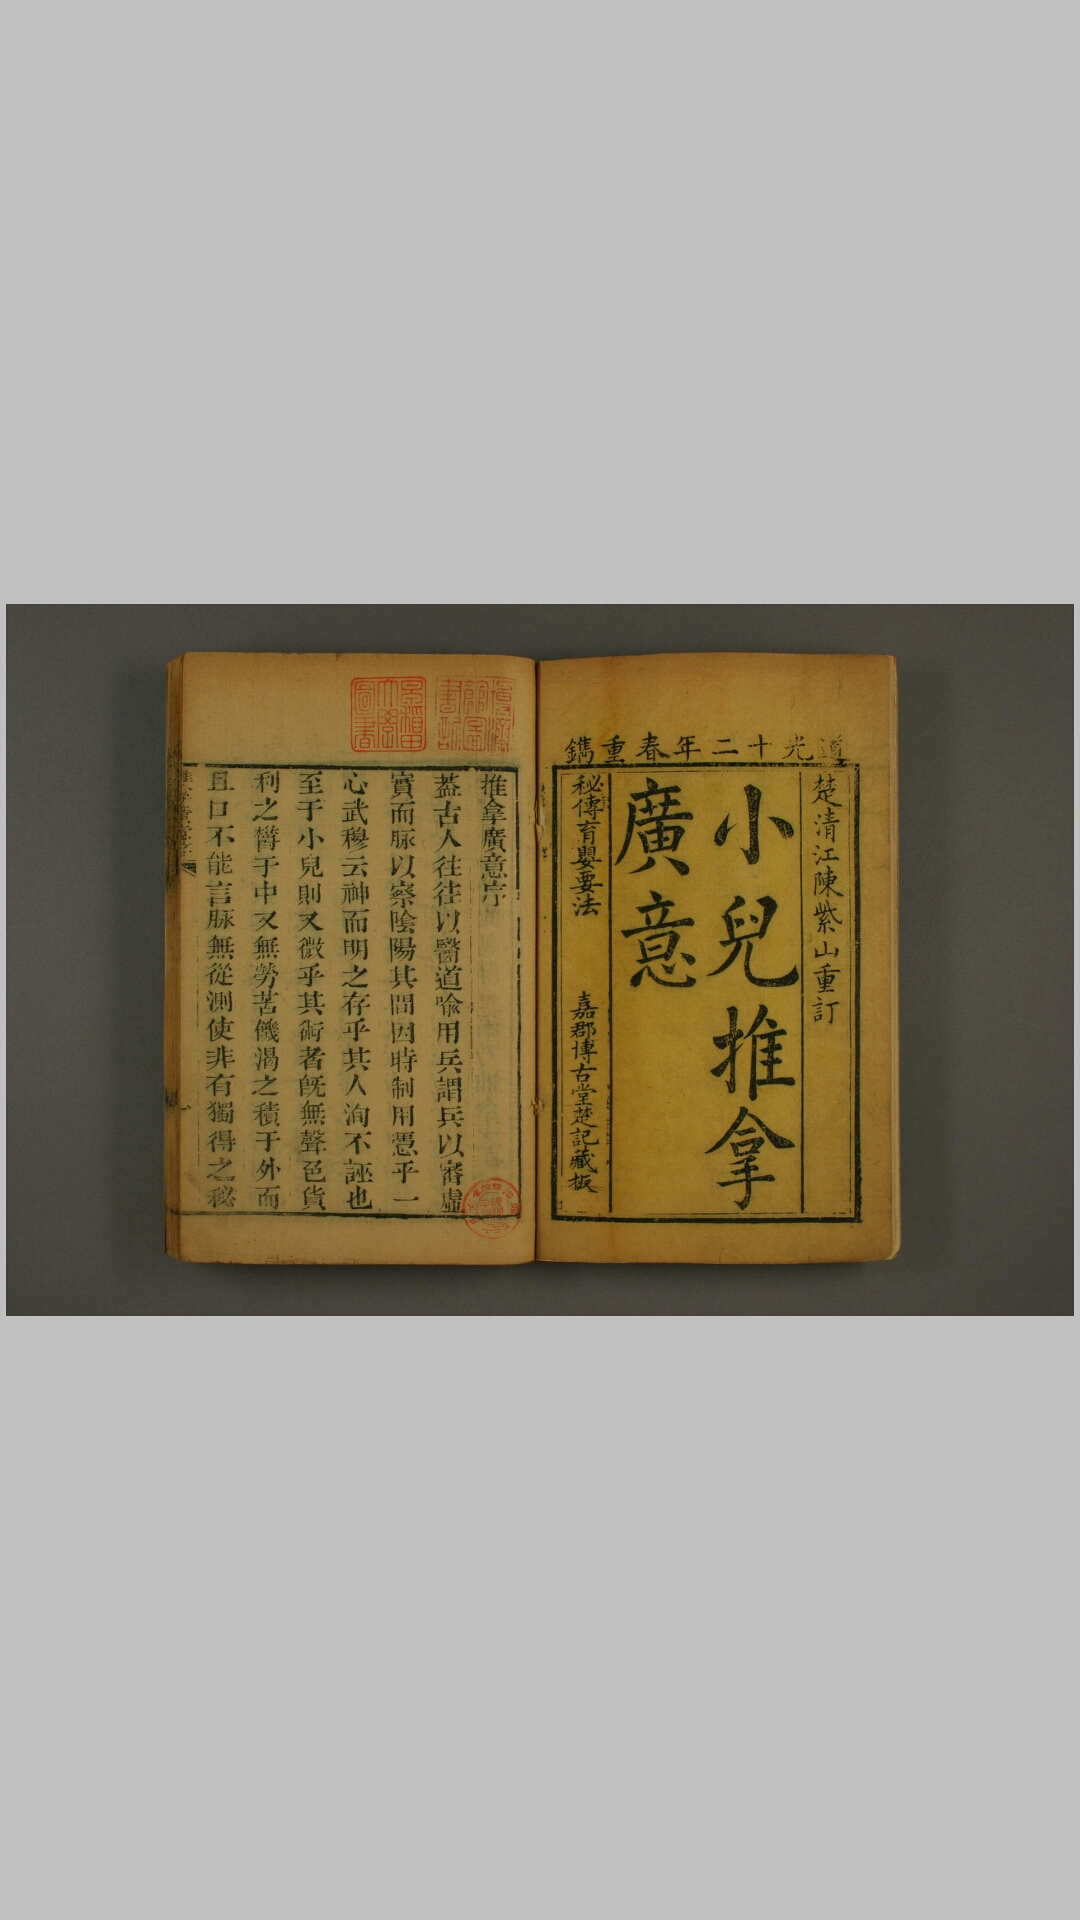 道光十二年春重鐫
楚清江陳紫山重訂
小兒推拿
廣意
秘傳育嬰要法
嘉郡博古堂楚記藏板
推拿廣意序
蓋古人往往以醫道喻用兵謂兵以審虛
實而脉以察陰陽其間因時制用憑乎一
心武穆云神而明之存乎其人洵不誣也
至于小兒則又微乎其術者旣無聲色貨
利之欝于中又無勞苦饑渴之積于外而
且口不能言脉無從測使非有獨得之秘
圖書